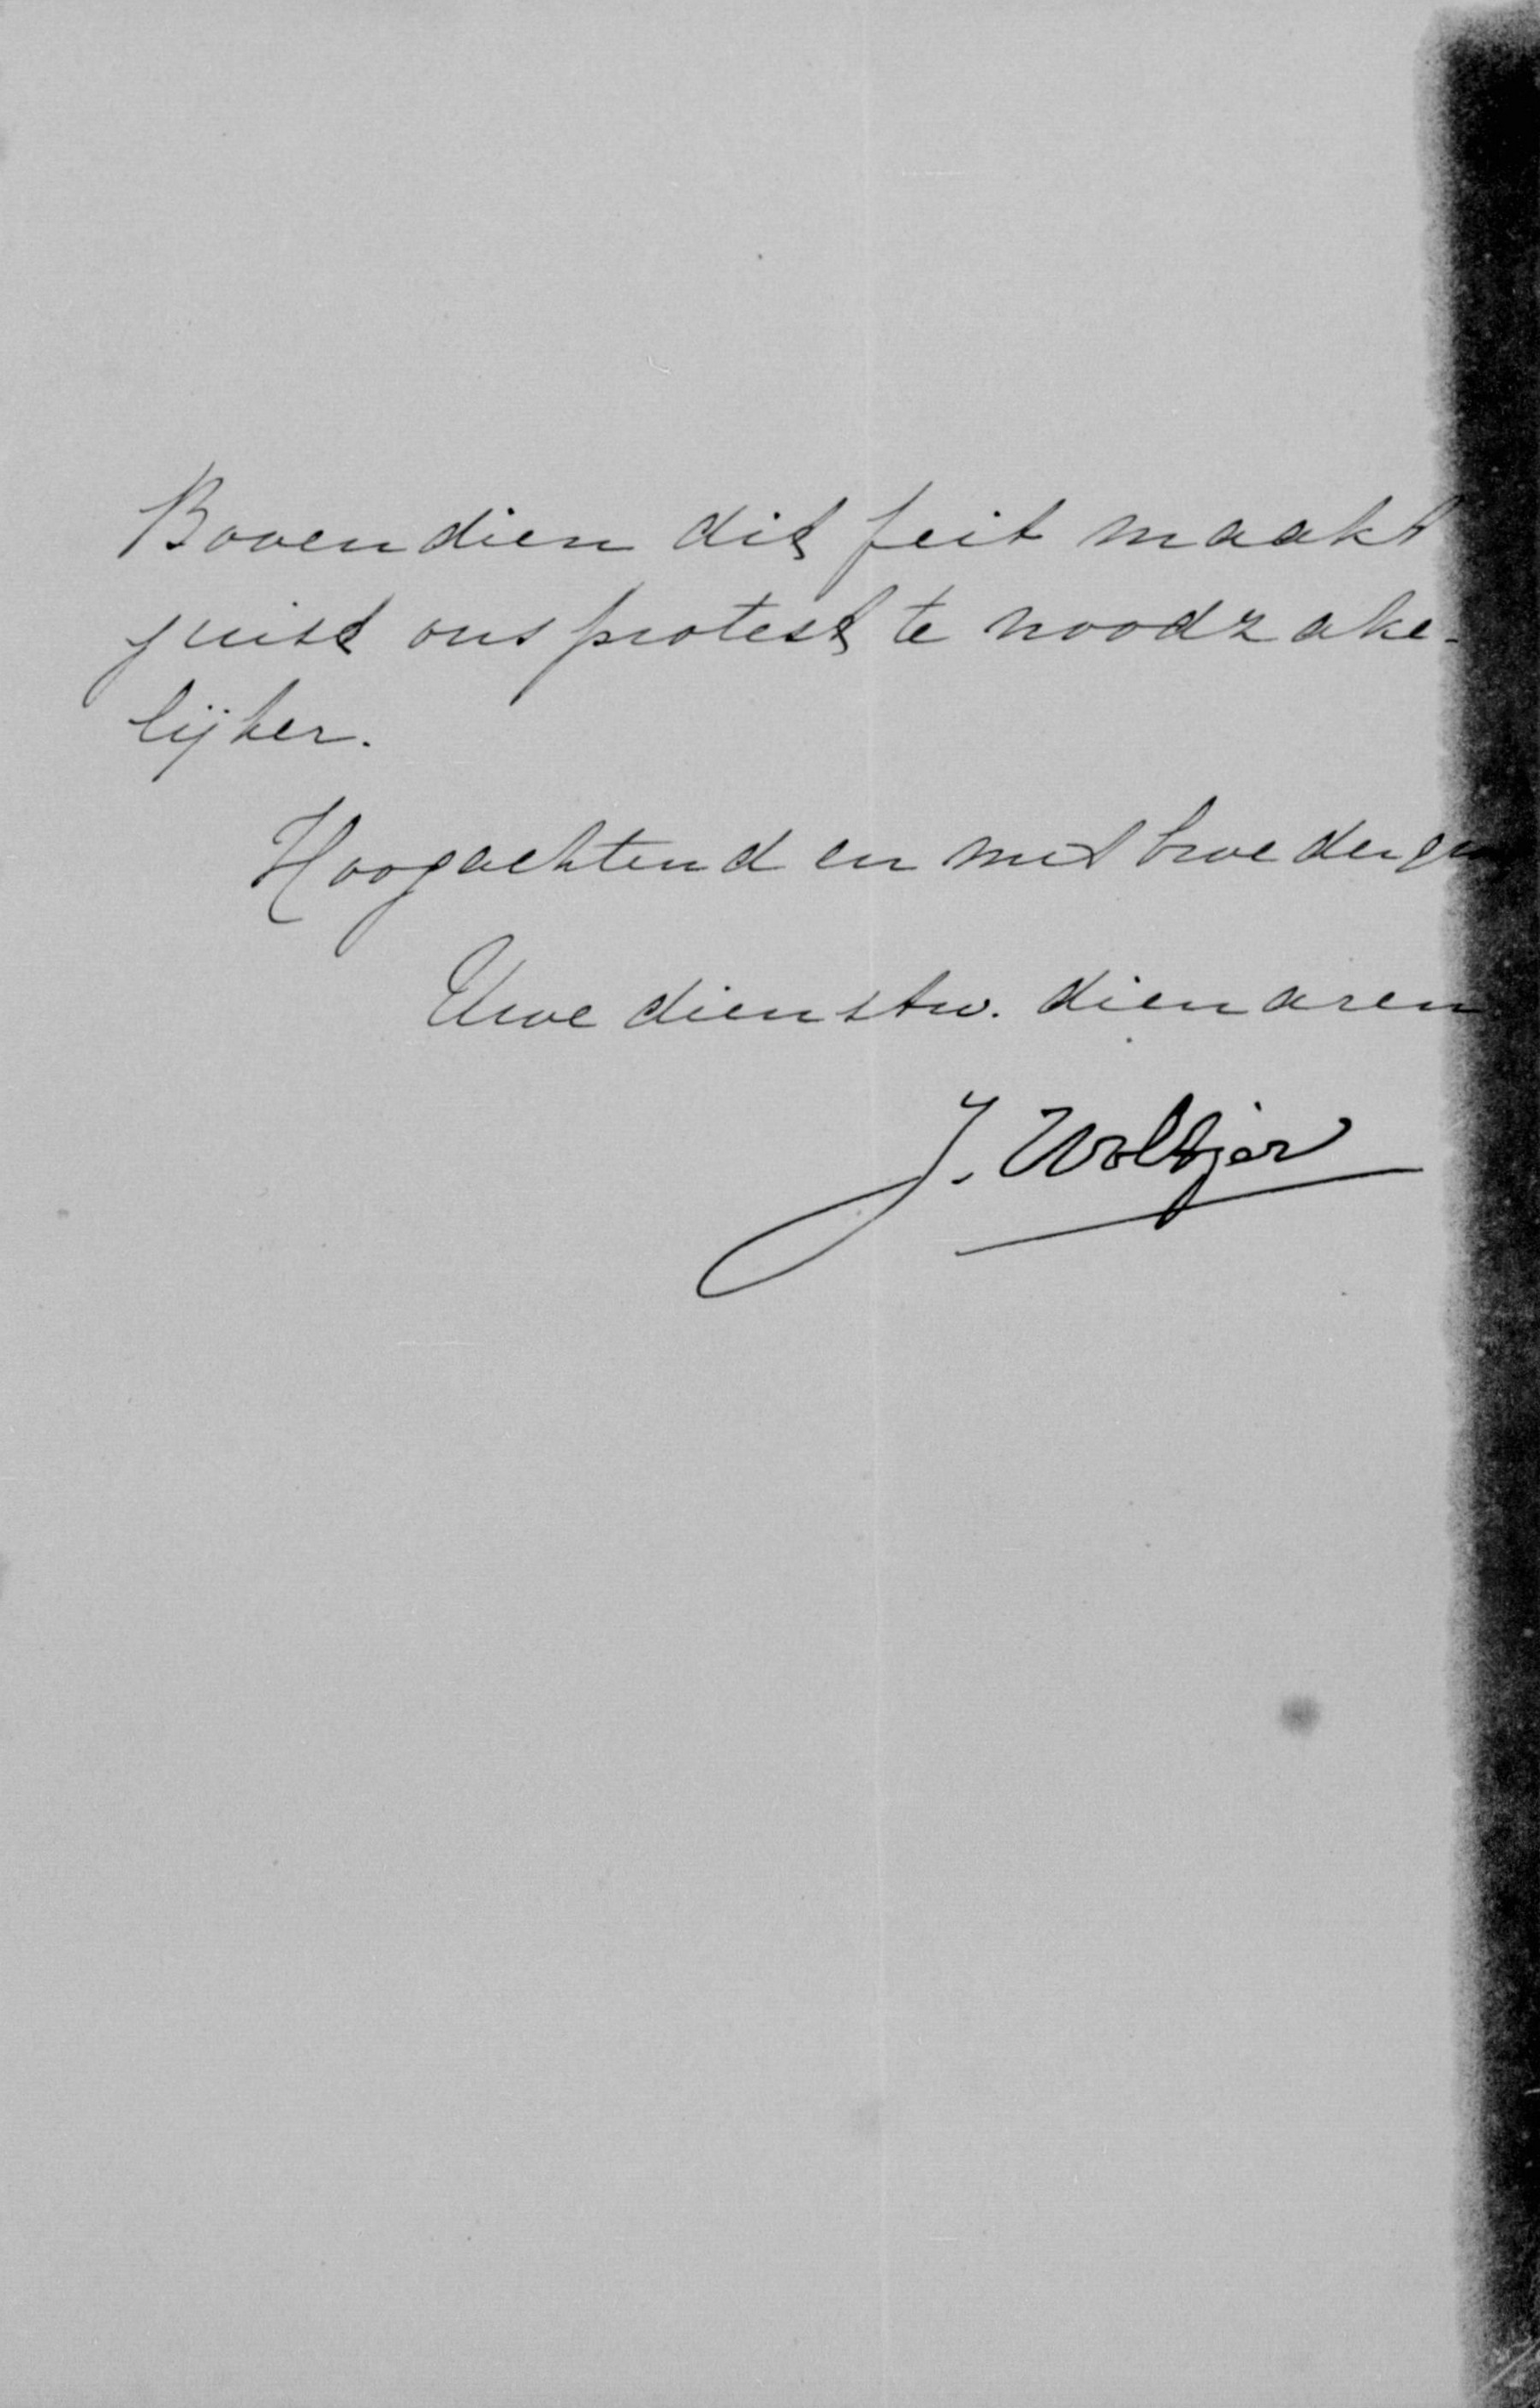 Bovendien dit feit maakt
juist ons protest te noodzake-
lijker.
Hoogachtend en met
Uwe dienstw. dienaren
J. Woltjer